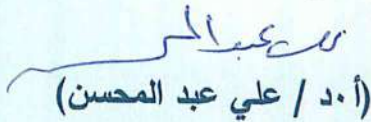 (أ.د / علي عبد المحسن)